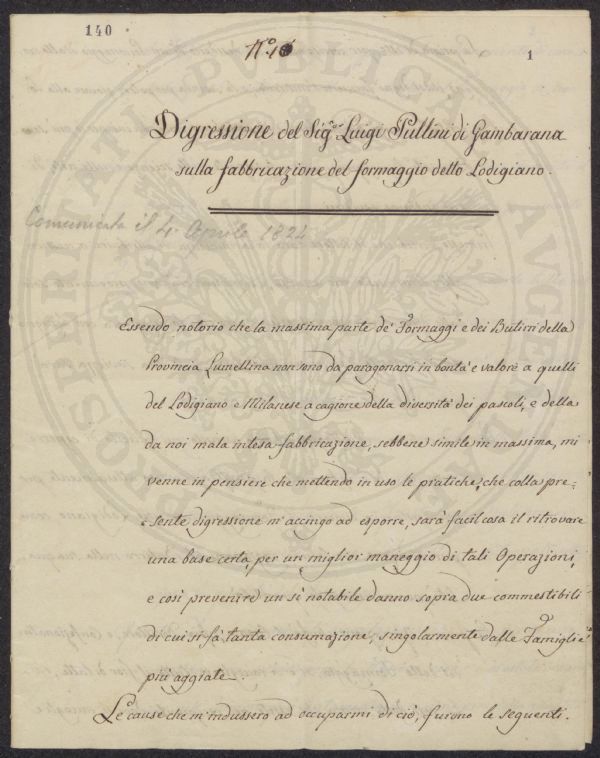 140
N.° 1
1
Digressione del Sig.r Luigi Pullini di Gambarana
sulla fabbricazione del formaggio detto Lodigiano.
Comunicata il 4. Aprile 1824
Essendo notorio che la massima parte de' Formaggi e dei Butirri della
Provincia Lumellina non sono da paragonarsi in bontà e valore a quelli
del Lodigiano e Milanese a cagione della diversità dei pascoli, e della
da noi mala intesa fabbricazione, sebbene simile in massima, mi
venne in pensiere che mettendo in uso le pratiche, che colla pre=
sente digressione m'accingo ad esporre, sarà facil cosa il ritrovare
una base certa, per un miglior maneggio di tali Operazioni,
e così prevenire un sì notabile danno sopra due commestibili
di cui si fà tanta consumazione, singolarmente dalle Famiglie
più aggiate.
Le cause che m'indussero ad occuparmi di ciò, furono le seguenti.
PROSPERITATI PUBLICAE AUGENDAE